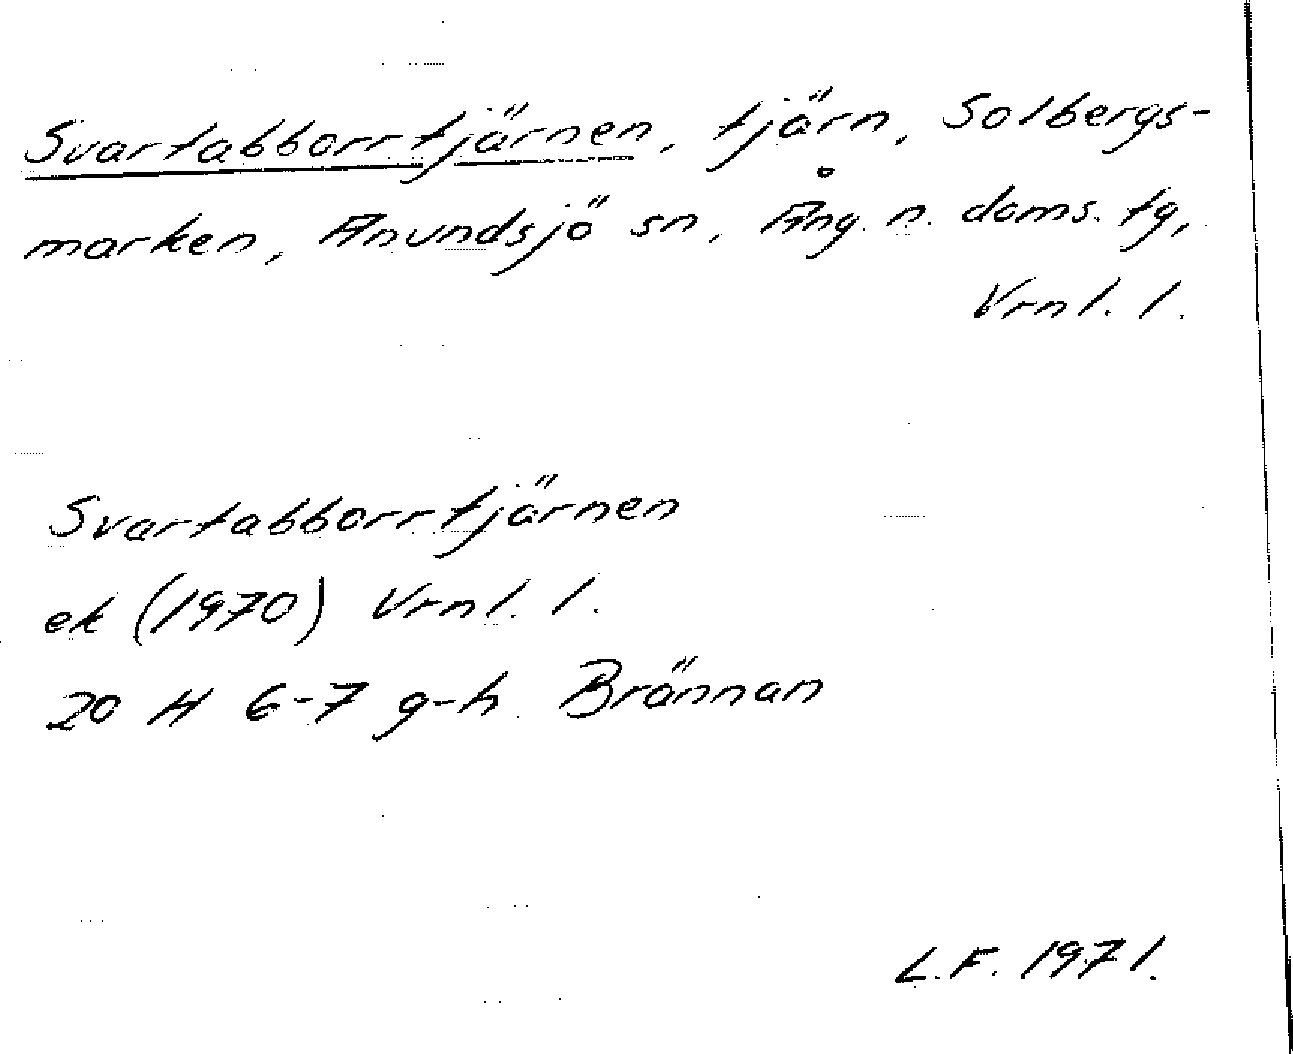 Svartabborrtjärnen, tjärn, Solbergs-
marken, Anundsjö sn, Ång. n. doms. tg,
Vrnl. l.
Svartabborrtjärnen
ek (1970) Vrnl. l.
20 H 6-7 g-h Brännan
L.F. 1971.